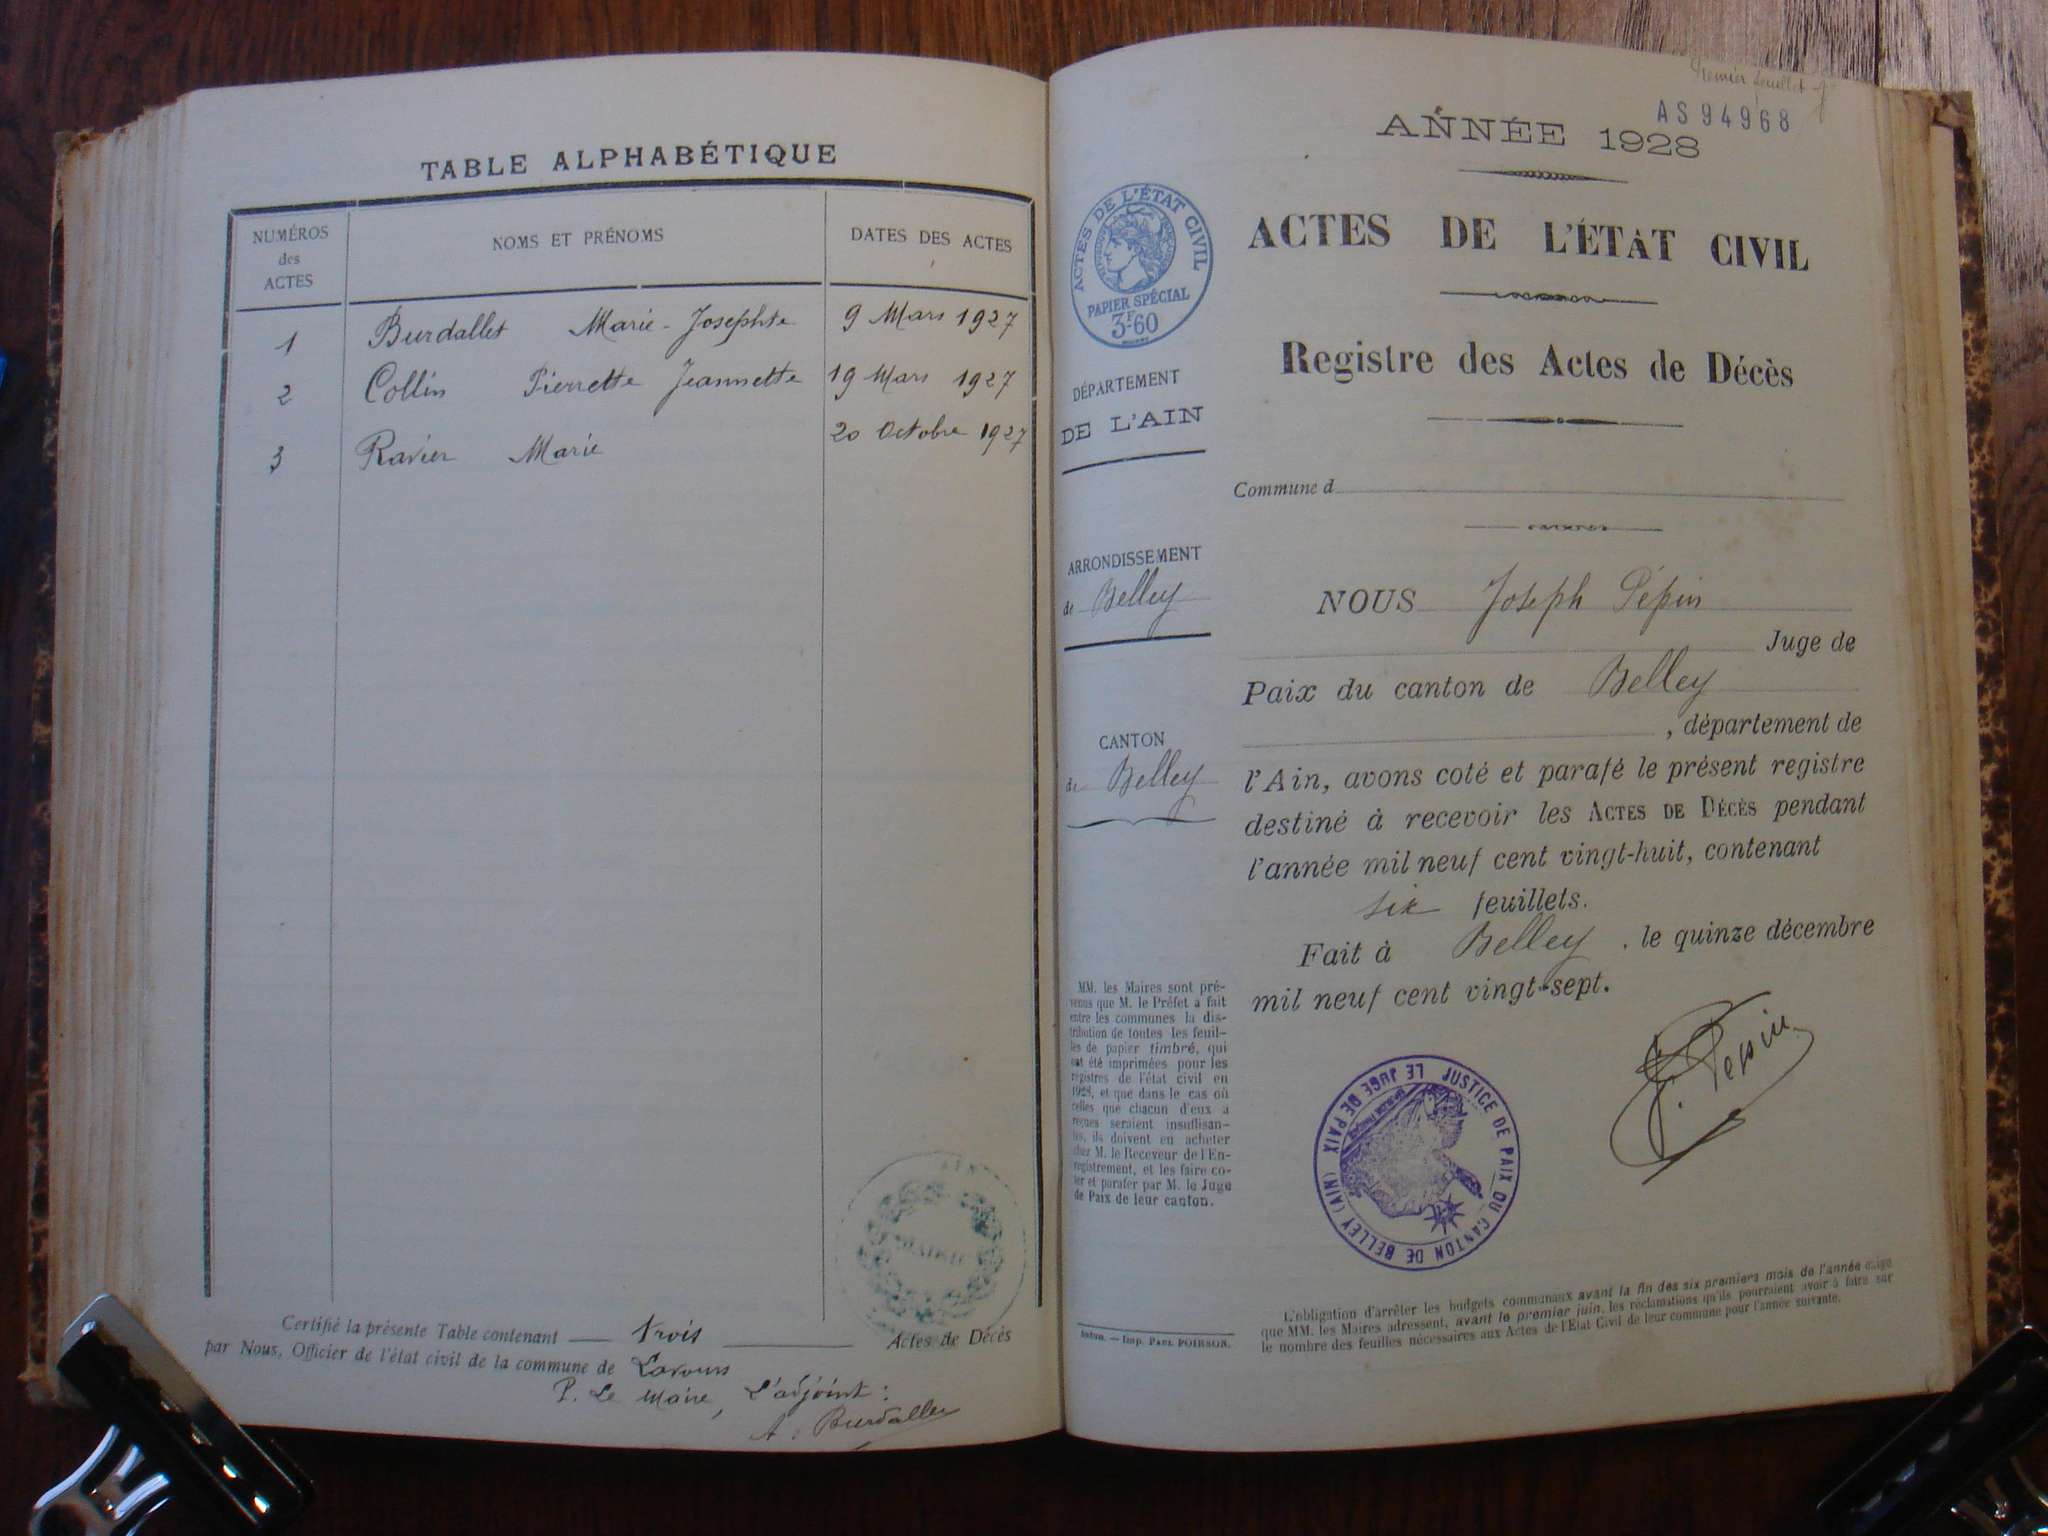 TABLE ALPHABÉTIQUE
NUMÉROS des ACTES
NOMS ET PRÉNOMS
DATES DES ACTES
1 Burdallet Marie-Josephte 9 Mars 1927
2 Collin Pierrette Jeannette 19 Mars 1927
3 Ravier Marie 20 Octobre 1927
Certifié la présente Table contenant trois Actes de Décès
par Nous, Officier de l'état civil de la commune de Lavours
P. Le Maire, L'adjoint :
A. Burdallet
MAIRIE
Premier feuillet
AS 94968
ANNÉE 1928
ACTES DE L'ÉTAT CIVIL
PAPIER SPÉCIAL
3F-60
ACTES DE L'ÉTAT CIVIL
Registre des Actes de Décès
DÉPARTEMENT
DE L'AIN
Commune d
ARRONDISSEMENT
de Belley
CANTON
de Belley
NOUS Joseph Pépin
Juge de
Paix du canton de Belley
, département de
l'Ain, avons coté et parafé le présent registre
destiné à recevoir les ACTES DE DÉCÈS pendant
l'année mil neuf cent vingt-huit, contenant
six feuillets.
Fait à Belley, le quinze décembre
mil neuf cent vingt-sept.
J. Pépin
MM. les Maires sont pré-
venus que M. le Préfet a fait
entre les communes la dis-
tribution de toutes les feuil-
les de papier timbré, qui
ont été imprimées pour les
registres de l'état civil en
1928, et que dans le cas où
celles que chacun d'eux a
reçues seraient insuffisan-
tes, ils doivent en acheter
chez M. le Receveur de l'En-
registrement, et les faire co-
ter et parafer par M. le Juge
de Paix de leur canton.
JUSTICE DE PAIX DU CANTON DE BELLEY (AIN) LE JUGE DE PAIX
L'obligation d'arrêter les budgets communaux avant la fin des six premiers mois de l'année exige
que MM. les Maires adressent, avant le premier juin, les réclamations qu'ils pourraient avoir à faire sur
le nombre des feuilles nécessaires aux Actes de l'État Civil de leur commune pour l'année suivante.
Imp. Paul POIRSON.